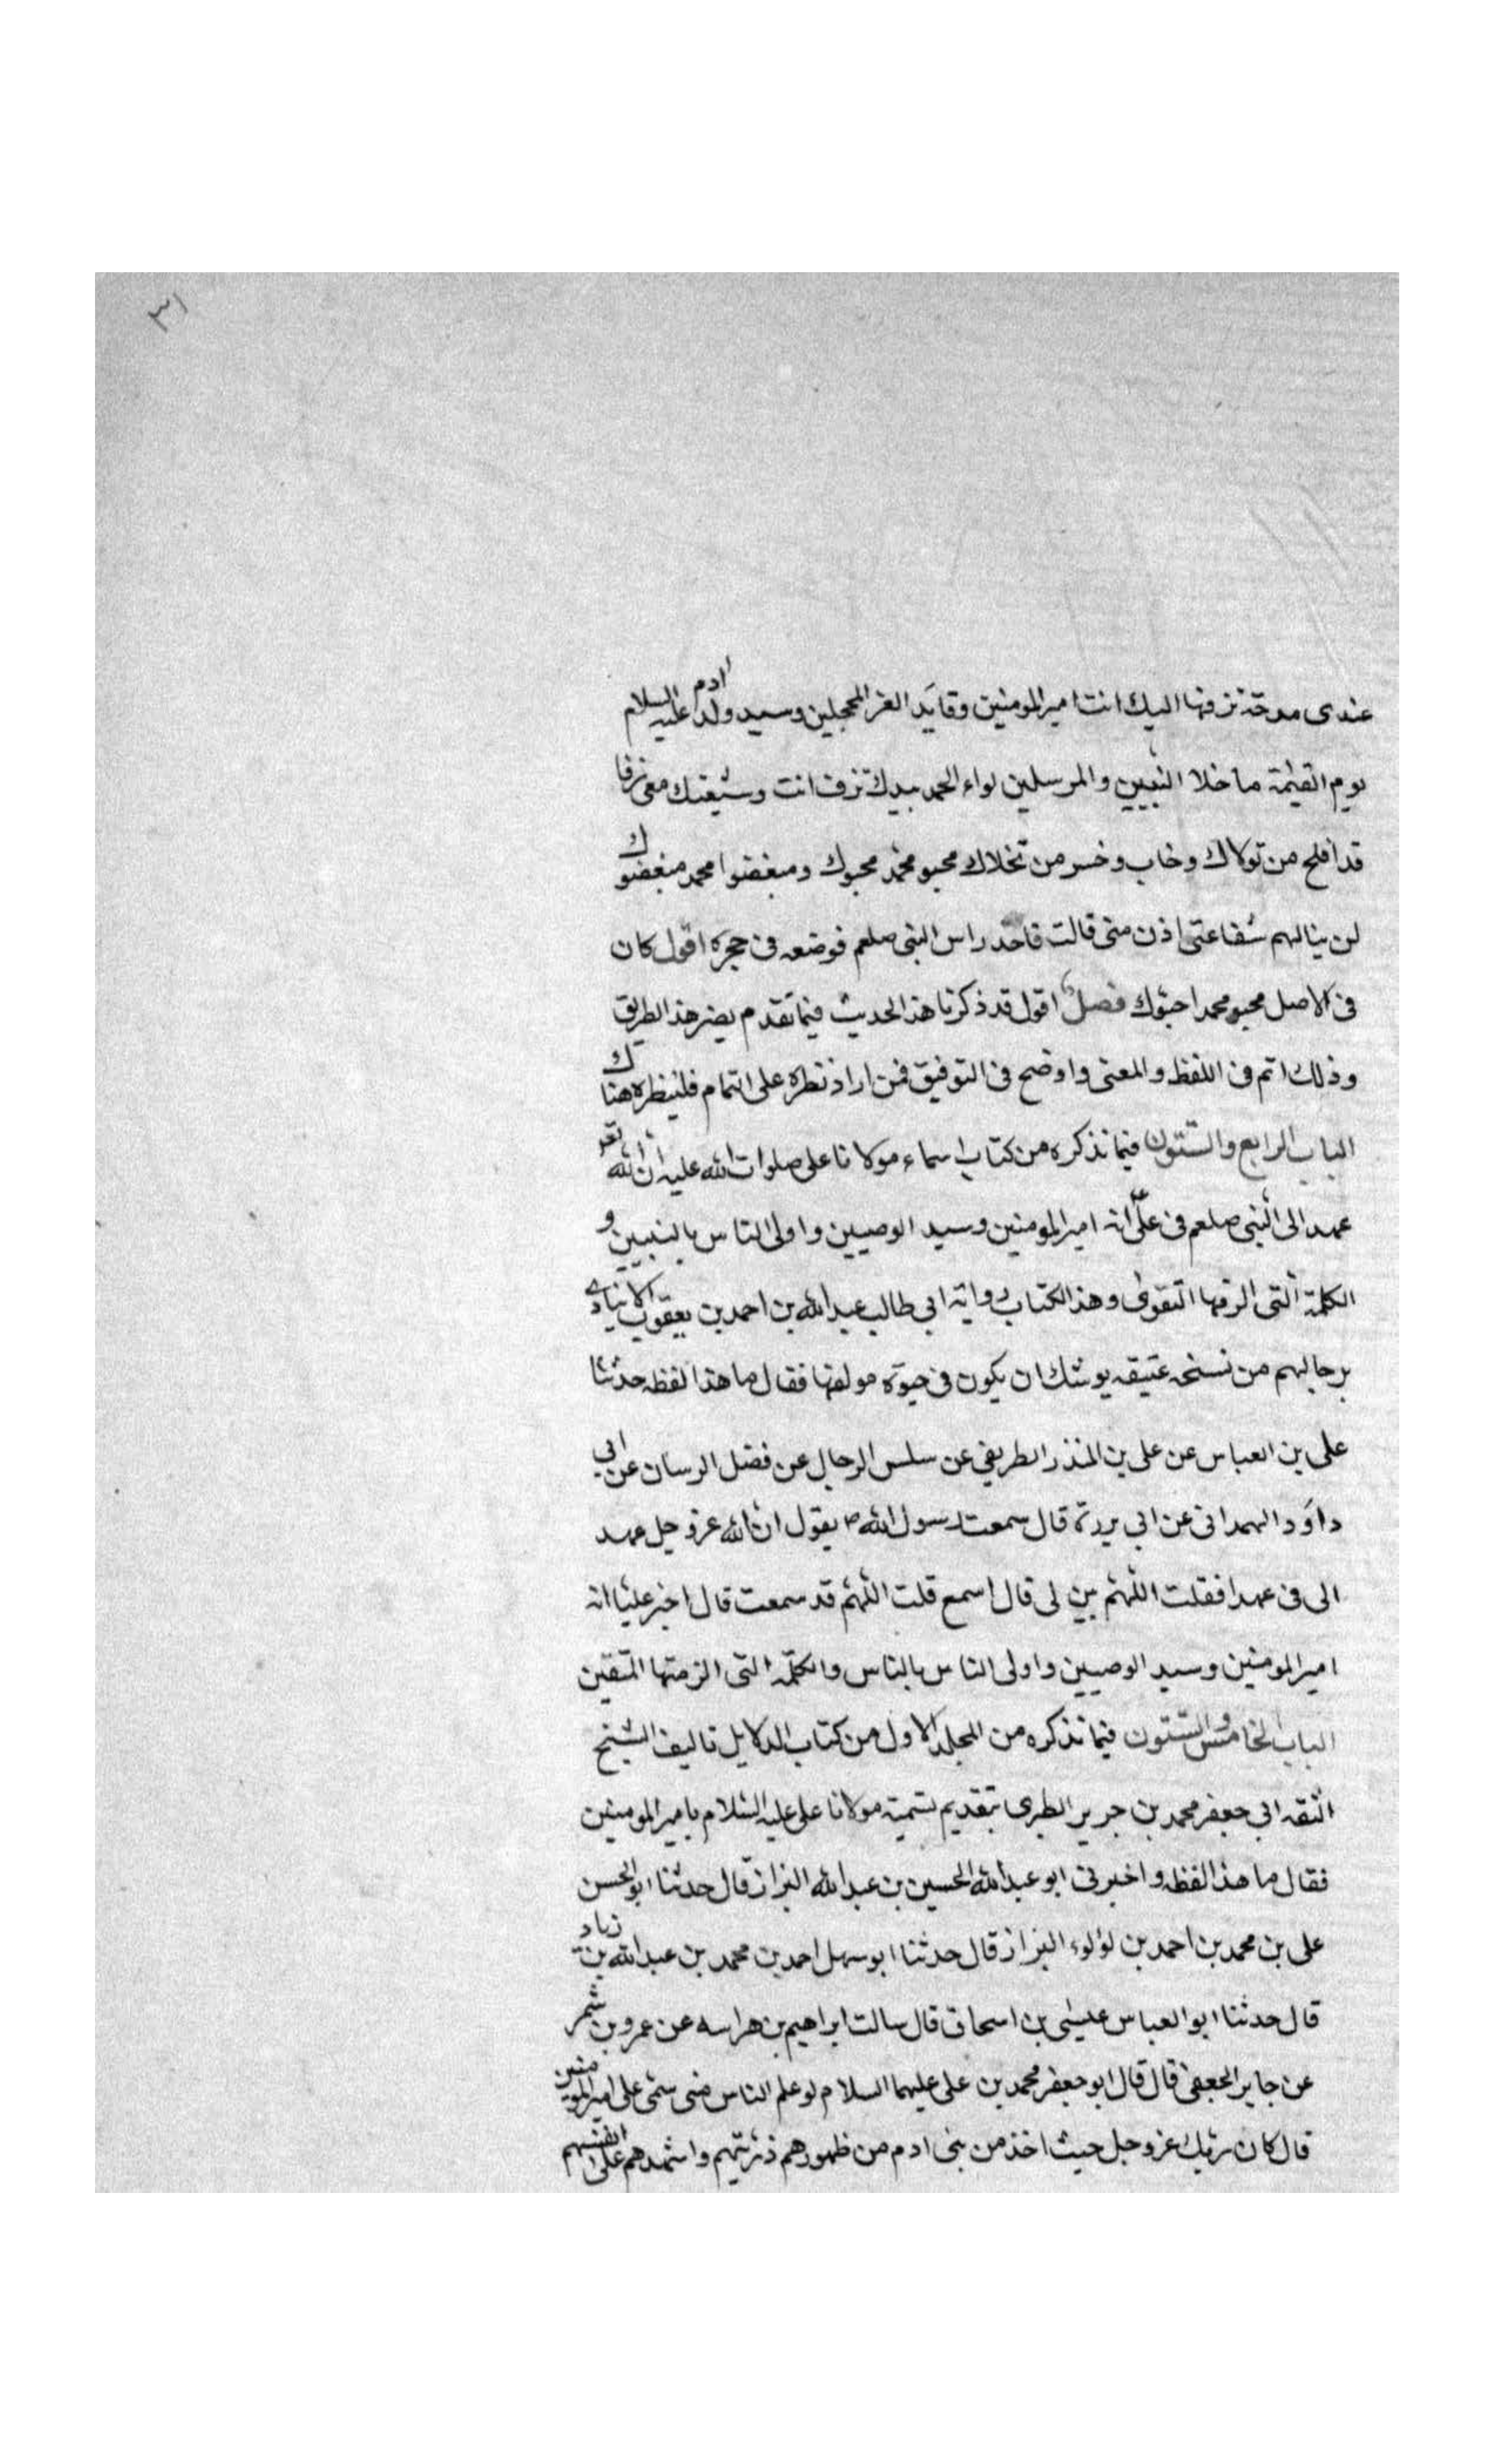 ٣١
عندى مدحة نزفها اليك انت امير المومنين وقايد الغر المحجلين وسيد ولد ادم عليه السلام
يوم القيمة ما خلا النبيين والمرسلين لواء الحمد بيدك تزف انت وشيعتك معى زفا
قد افلح من تولاك وخاب وخسر من تخلاك محبو محمد محبوك ومبغضوا محمد مبغضوك
لن ينالهم شفاعتى اذن منى قالت فاخذ راس النبى صلعم فوضعه فى حجره اقول كان
فى الاصل محبو محمد احبوك فصل اقول قد ذكرنا هذا الحديث فيما تقدم بغير هذا الطريق
وذلك اتم فى اللفظ والمعنى واوضح فى التوفيق فمن اراد نظره على التمام فلينظره هناك
الباب الرابع والستون فيما نذكره من كتاب اسماء مولانا على صلوات الله عليه ان الله تعر
عهد الى النبى صلعم فى على انه امير المومنين وسيد الوصيين واولى الناس بالنبيين و
الكلمة التى الزمها التقوى وهذا الكتاب رواية ابى طالب عبد الله بن احمد بن يعقوب الانبارى
برجالهم من نسخه عتيقه يوشك ان يكون فى حيوة مولفها فقال ما هذا لفظه حدثنا
على بن العباس عن على بن المنذر الطريفى عن سلس الرحال عن فضل الرسان عن ابى
داود الهمدانى عن ابى بردة قال سمعت رسول الله ص يقول ان الله عز وجل عهد
الى فى عهدا فقلت اللهم بين لى قال اسمع قلت اللهم قد سمعت قال اخبر عليا انه
امير المومنين وسيد الوصيين واولى الناس بالناس والكلمة التى الزمتها المتقين
الباب الخامس والستون فيما نذكره من المجلد الاول من كتاب الدلايل تاليف الشيخ
الثقه ابى جعفر محمد بن جرير الطبرى بتقديم تسمية مولانا على عليه السلام بامير المومنين
فقال ما هذا لفظه واخبرنى ابو عبد الله الحسين بن عبد الله البزاز قال حدثنا ابو الحسن
على بن محمد بن احمد بن لؤلوء البزاز قال حدثنا ابو سهل احمد بن محمد بن عبد الله بن زياد
قال حدثنا ابو العباس عيسى بن اسحاق قال سالت ابراهيم بن هراسه عن عمرو بن شمر
عن جابر الجعفى قال قال ابو جعفر محمد بن على عليهما السلام لو علم الناس متى سمى على امير المومنين
قال كان ربك عز وجل حيث اخذ من بنى ادم من ظهورهم ذريتهم واشهدهم على انفسهم